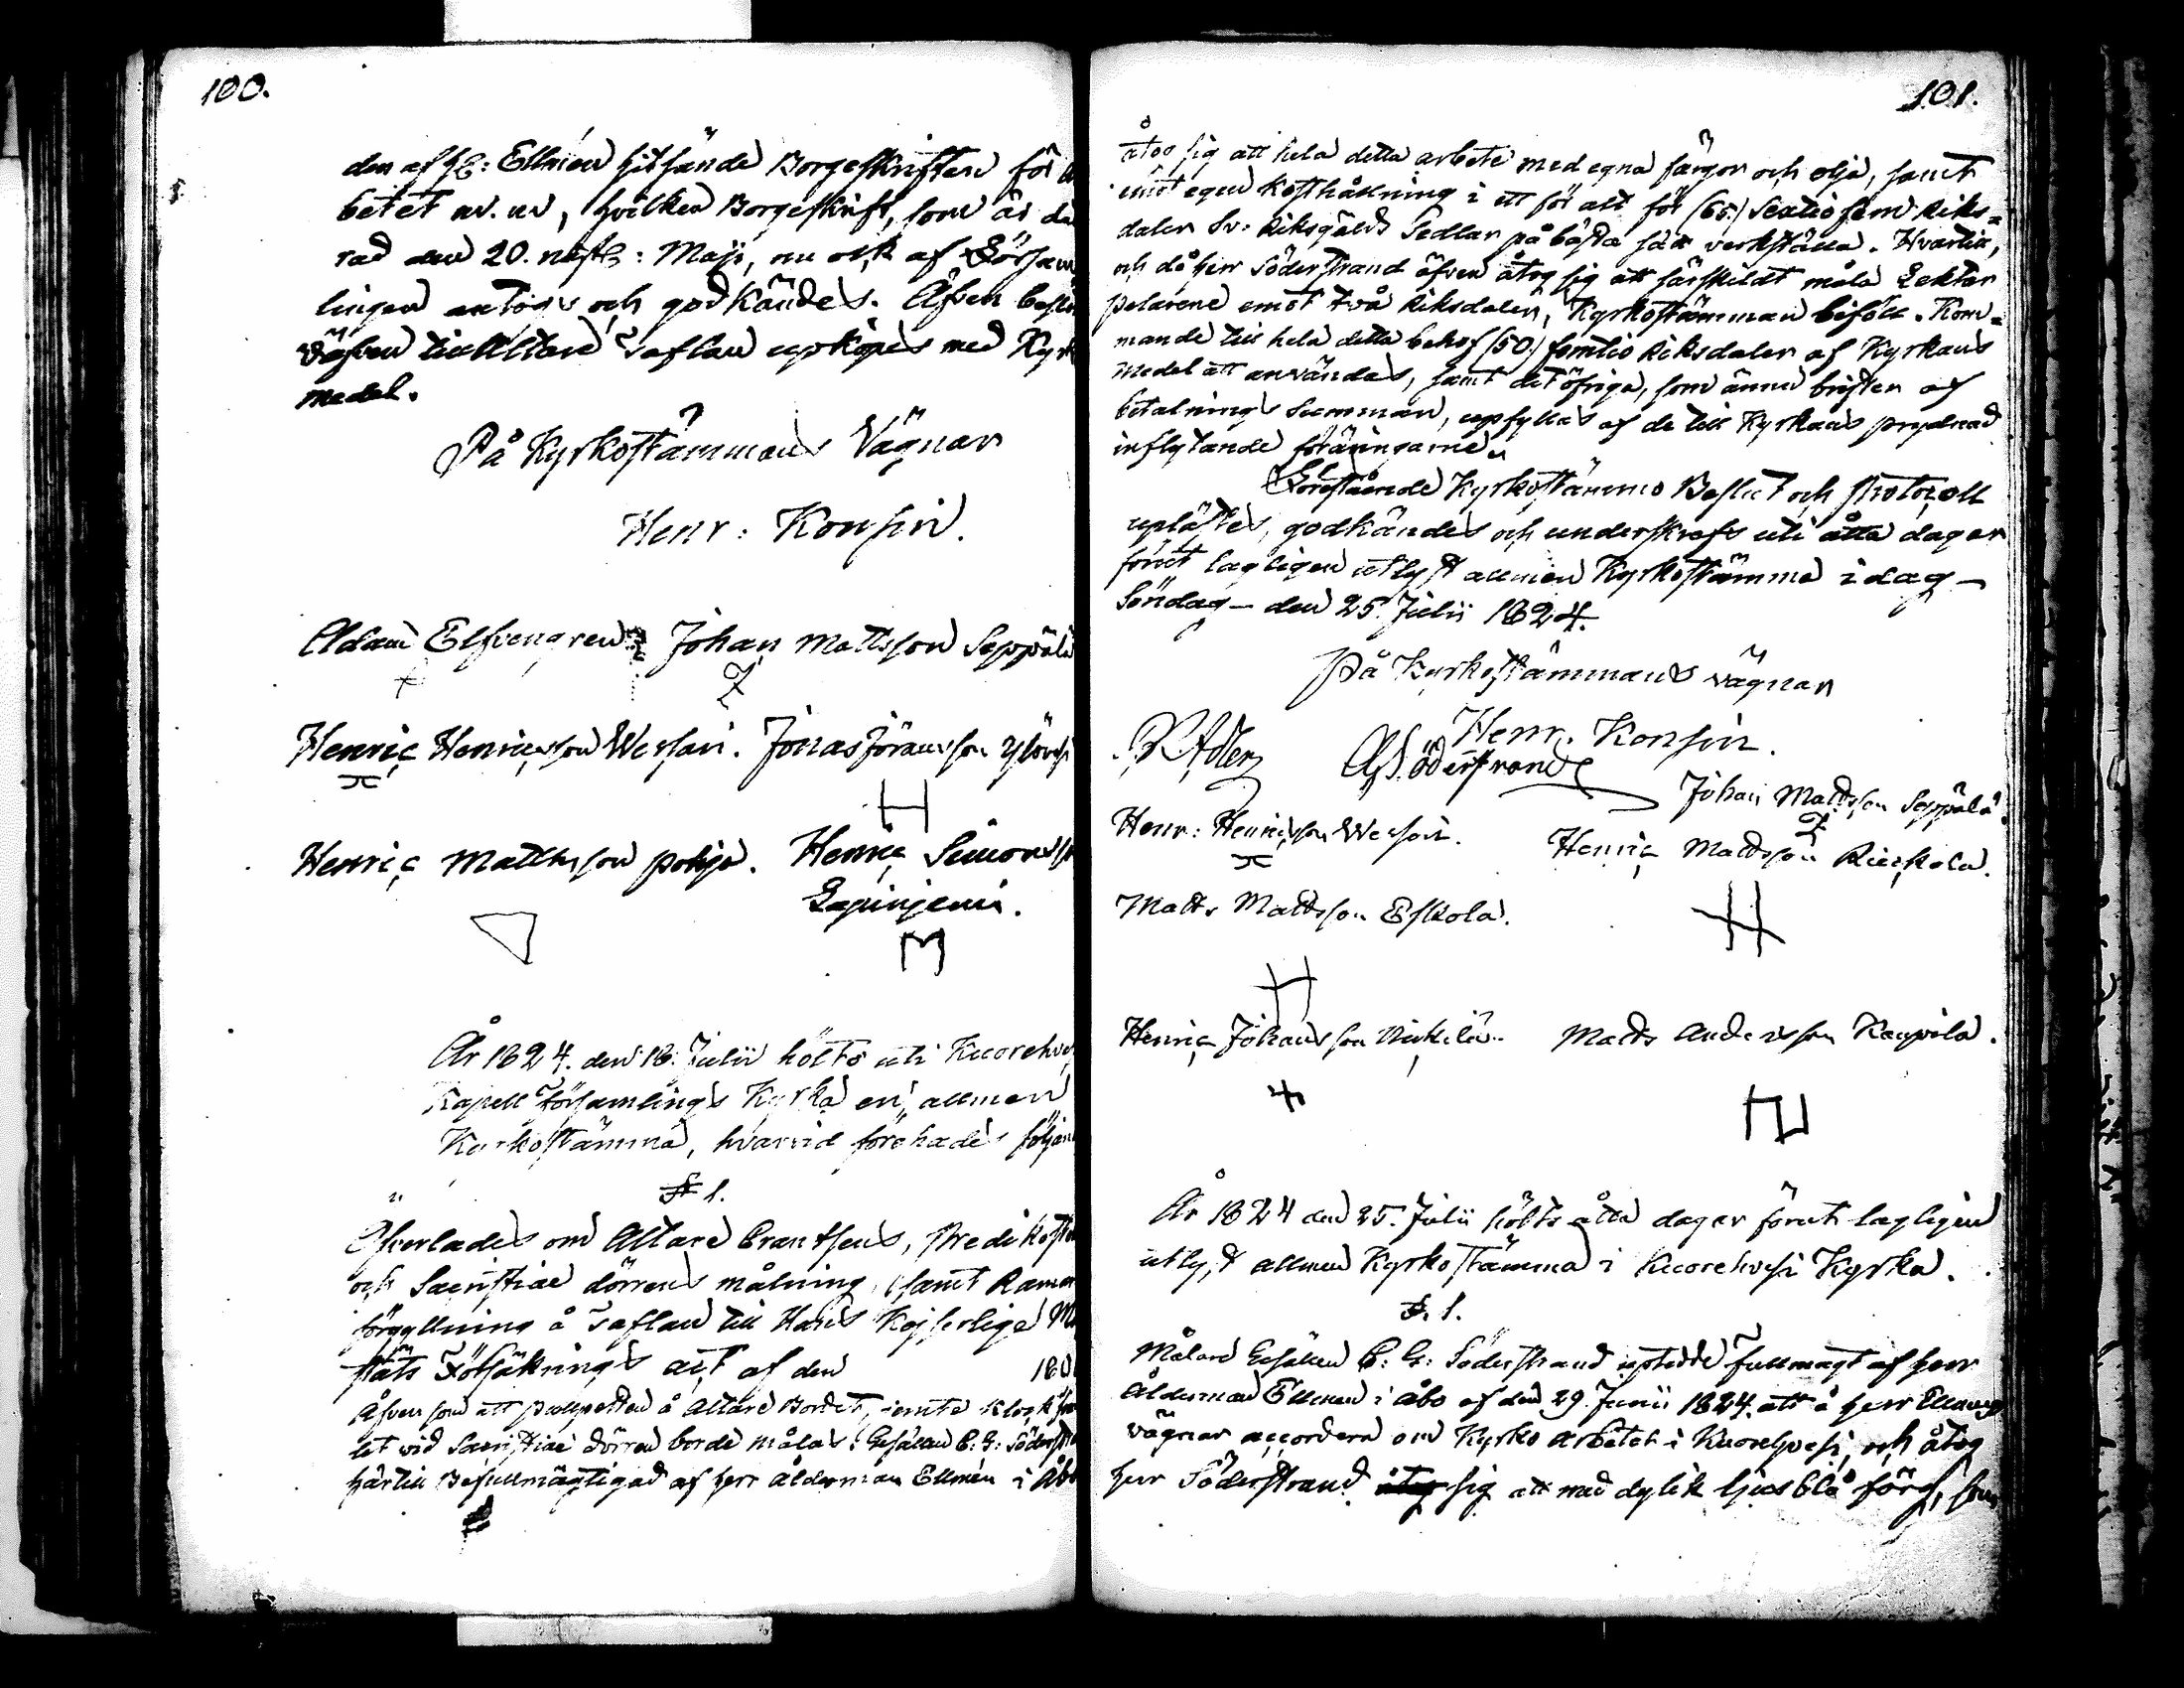 100.
den af H: Ellmén hitsände Borgeskriften för
betet m. m., hvilken Borgeskrift, som är
rad den 20. nästl: Maji, nu ock af Försam
lingen antogs och godkändes. Äfven
väfven till Altare Taflan upköpes med Kyrk
medel.
På Kyrkostämmans Vägnar
Henr: Konsin.
Adam Elfvengren Johan Mattsson Seppälä
Henric Henricsson Wesari. Jonas Göransson
Henric Mattsson Pohja. Henric Simonsson
År 1824. den 18. Julii hölts uti Kuorehve
Kapell Församlings Kyrka en allmen
Kyrkostämma, hvarvid förehades följan
§ 1.
Öfverlades om Altare Crantsens, Prediksto
och Sacristiae dörrens målning, samt Ramen
förgyllning å Taflan till Hans Kejserliga M
stäts Försäkrings act af den 180
Äfvensom att pullpetten å Altare Bordet, jemte Klock
let vid Sacristiae dörren borde målas. Gesällen C: G: Söderstra
härtill Befullmägtigad af Herr Ålderman Ellmén i Åbo
101.
åtog sig att hela detta arbete med egna färgor och olja, samt
emot egen kosthållning i ett för allt för (65.) Sextiofem Riks=
daler Sv: Riksgälds Sedlar på bästa sätt verkställa. Hvartill,
och då Herr Söderstrand äfven åtog sig att särskildt måla Lektar
pelarene emot två Riksdaler, Kyrkostämman biföll. Kom=
mande till hela detta behof (50.) femtio Riksdaler af Kyrkans
Medel att användas, samt det öfriga, som ännu brister af
betalnings Summan, upfyllas af de till Kyrkans prydnad
inflytande föräringarne.
Förestående Kyrkostämmo Beslut och Protocoll
uplästes, godkändes och underskrefs uti åtta dagar
förut lagligen utlyst allmen Kyrkostämma i dag –
Söndag – den 25. Julii 1824.
På Kyrkostämmans vägnar
Henr. Konsin.
Söderstrand
Johan Mattsson Seppälä.
Henr: Henricsson Wesari. Henric Mattsson Rieskola.
Matts Mattsson Eskola.
Henric Johansson Matts Andersson Kaupila.
År 1824 den 25. Julii hölts åtta dagar förut lagligen
utlyst allmen Kyrkostämma i Kuorehvesi Kyrka.
§. 1.
Målare Gesällen C: G: Söderstrand uptedde Fullmagt af Herr
Ålderman Ellmén i Åbo af den 29. Junii 1824. att å Herr Ellméns
vägnar accordera om Kyrko arbetet i Kuorehvesi, och åtog
Herr Söderstrand sig att med dylik ljusblå färg, som